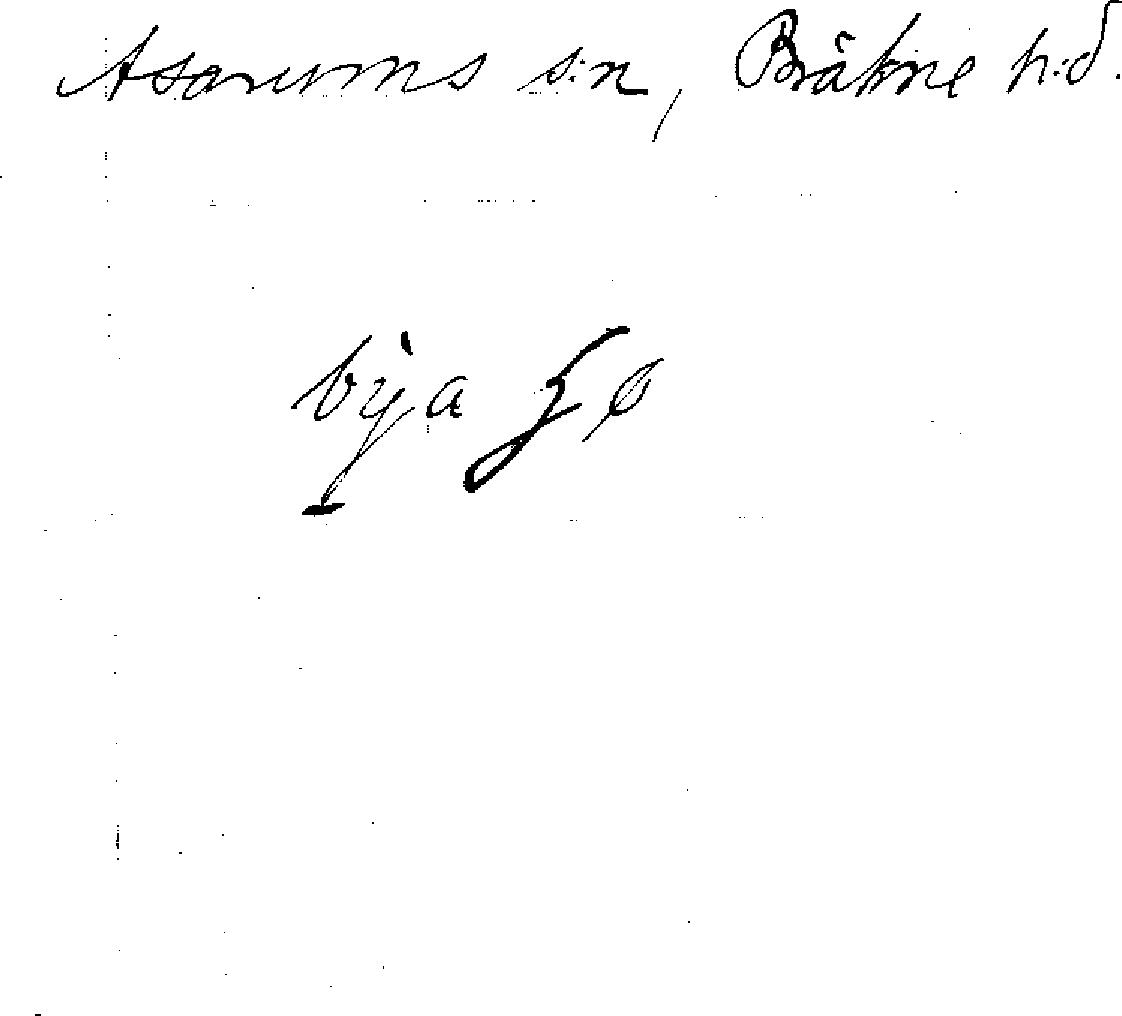 Asarums s:n, Bräkne h:d.
bỳa